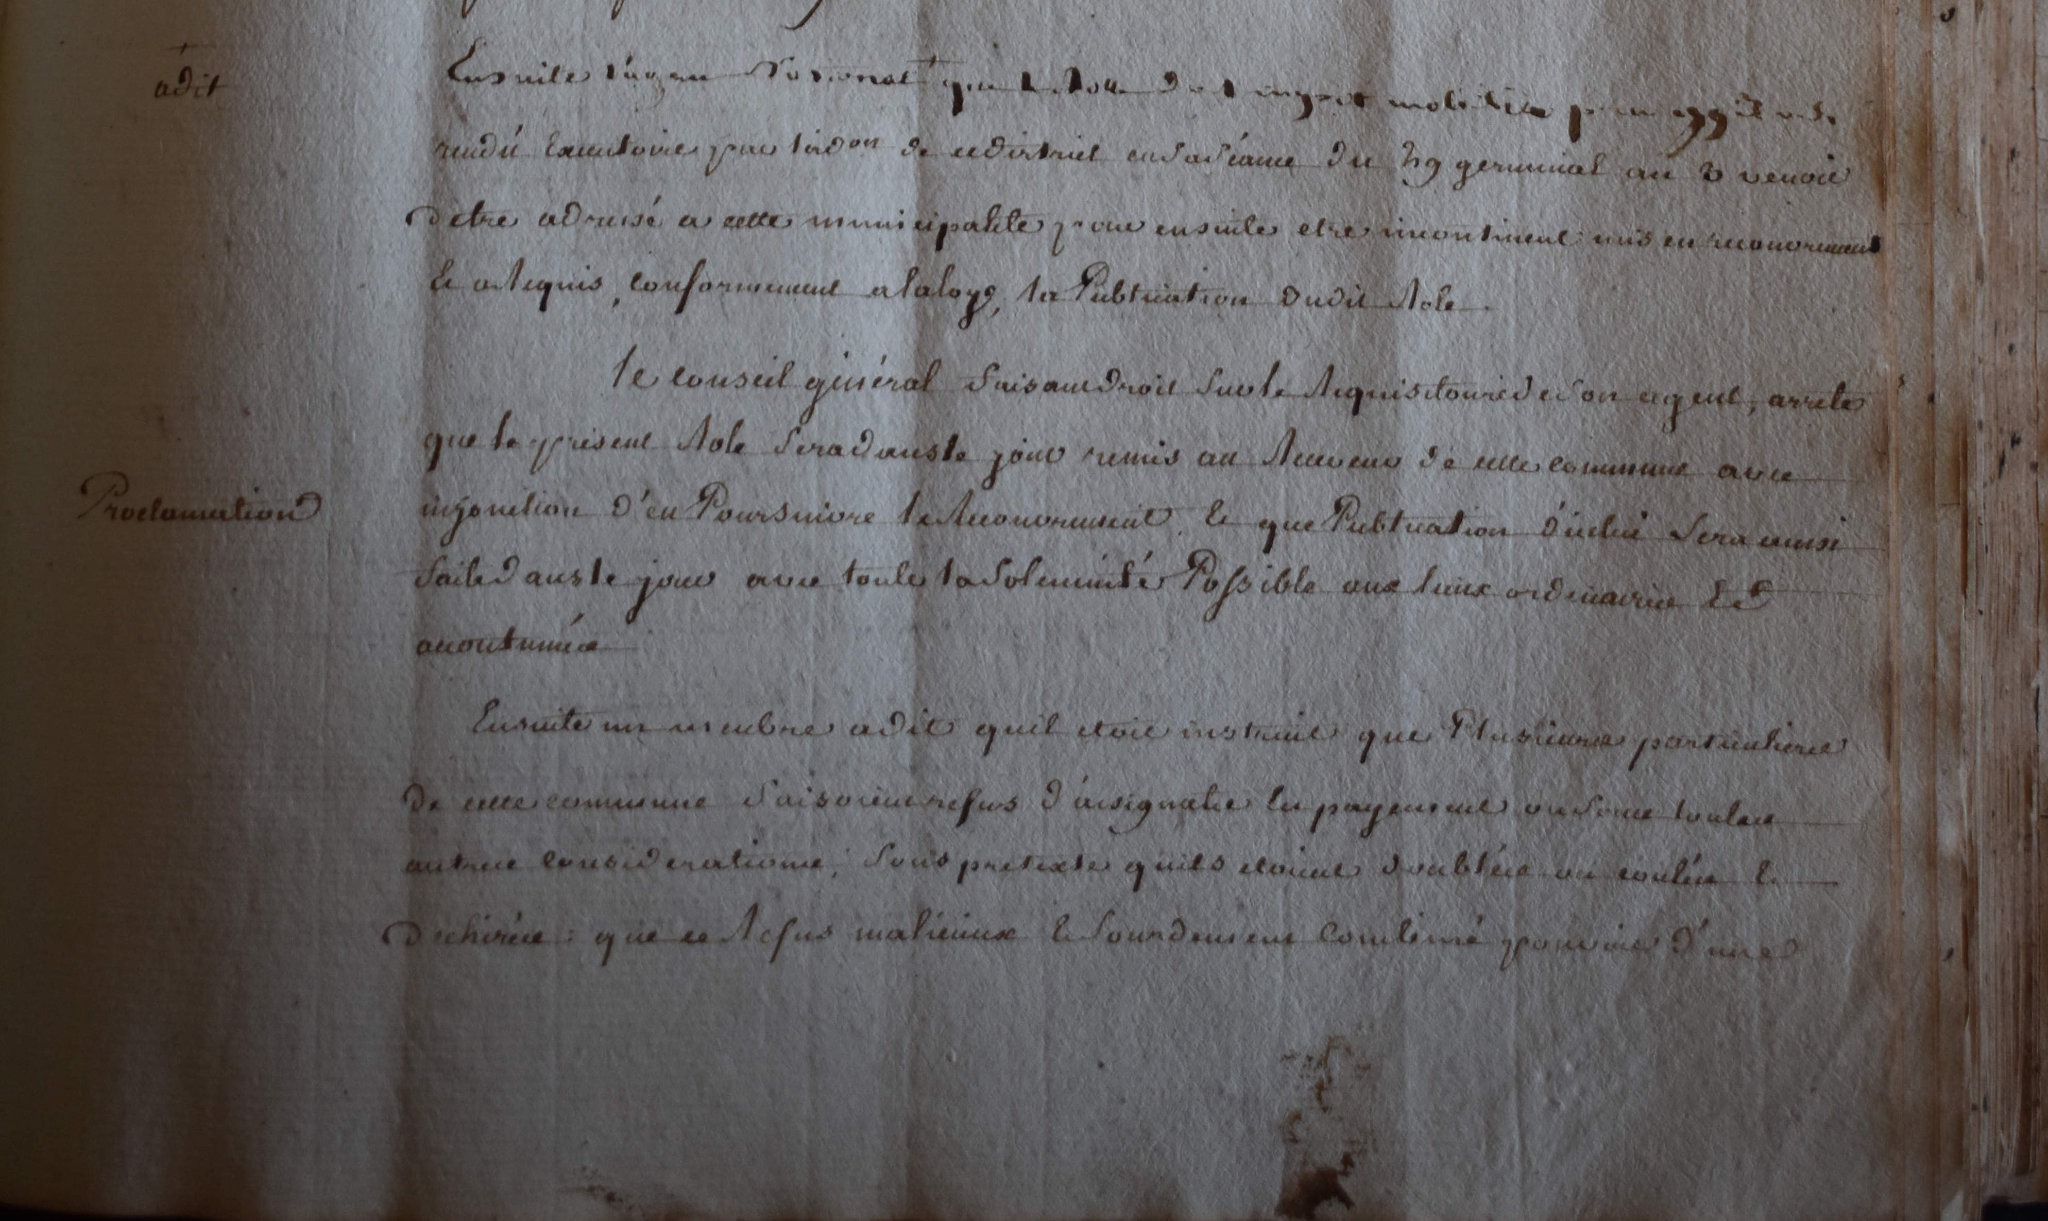 adit
Ensuite l'agent National + que le Role de l'impot mobiliere pour 1793
rendu executoire par l'ad.on de ce district en sa séance du 29 germinal an 3 venoit
detre adressé a cette municipalite pour ensuite etre incontinent mis en recouvrement
Et a Requis, conformement a la loye, la Publication dudit Role
le conseil général faisant droit sur le Requisitoire de son agent, arrete
que le present Role sera dans le jour remis au Receveur de cette commune avec
Proclamation
injonction d'en Poursuivre le Recouvrement. Et que Publication d'icelui sera aussi
faite dans le jour avec toute la solemnité Possible aux lieux ordinaires Et
acoutumés
Ensuite un membre a dit quil etoit instruit que Plusieurs particuliers
de cette commune faisoient refus d'assignats En payement ou pour toutes
autres considerations; sous pretexte quils etoient doublés ou coulés Et
dechirés: que ce Refus malicieux Et sourdement Combiné pouvoit d'une